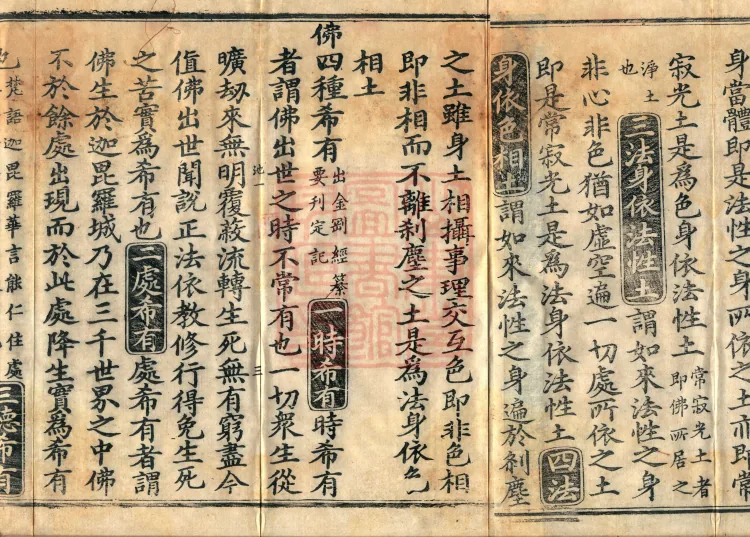 身當體即是法性之身所依之土而即常
寂光土是為色身依法性土常寂光土者即佛所居之
淨土也三法身依法性土謂如來法性之身
非心非色猶如虛空遍一切處所依之土
即是常寂光土是為法身依法性土四法
身依色相土謂如來法性之身遍於剎塵
之土雖身土相攝事理交互色即非色相
即非相而不離剎塵之土是為法身依色
相土
佛四種希有出金剛經纂要刊定記一時希有時希有
者謂佛出世之時不常有也一切眾生從
池一 三
曠劫來無明覆蔽流轉生死無有窮盡今
值佛出世聞說正法依教修行得免生死
之苦實為希有也二處希有處希有者謂
佛生於迦毘羅城乃在三千世界之中佛
不於餘處出現而於此處降生實為希有
也梵語迦毘羅華言能仁住處三德希有